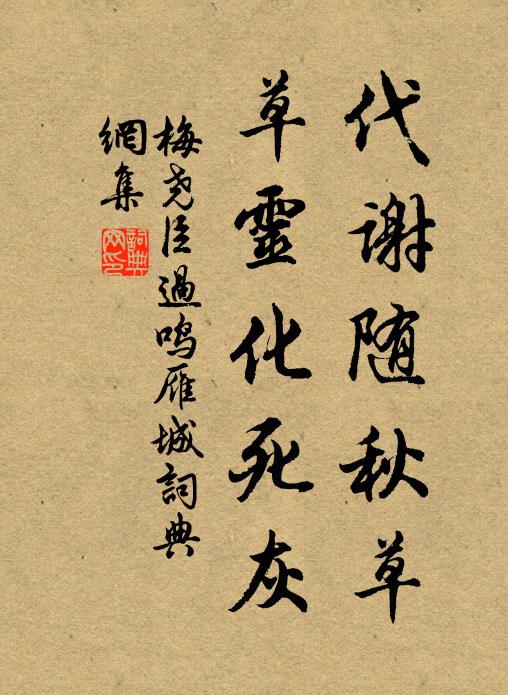 代谢随秋草
草靈化死灰
梅尧臣過鸣雁城詞典
網集
詞典
网印